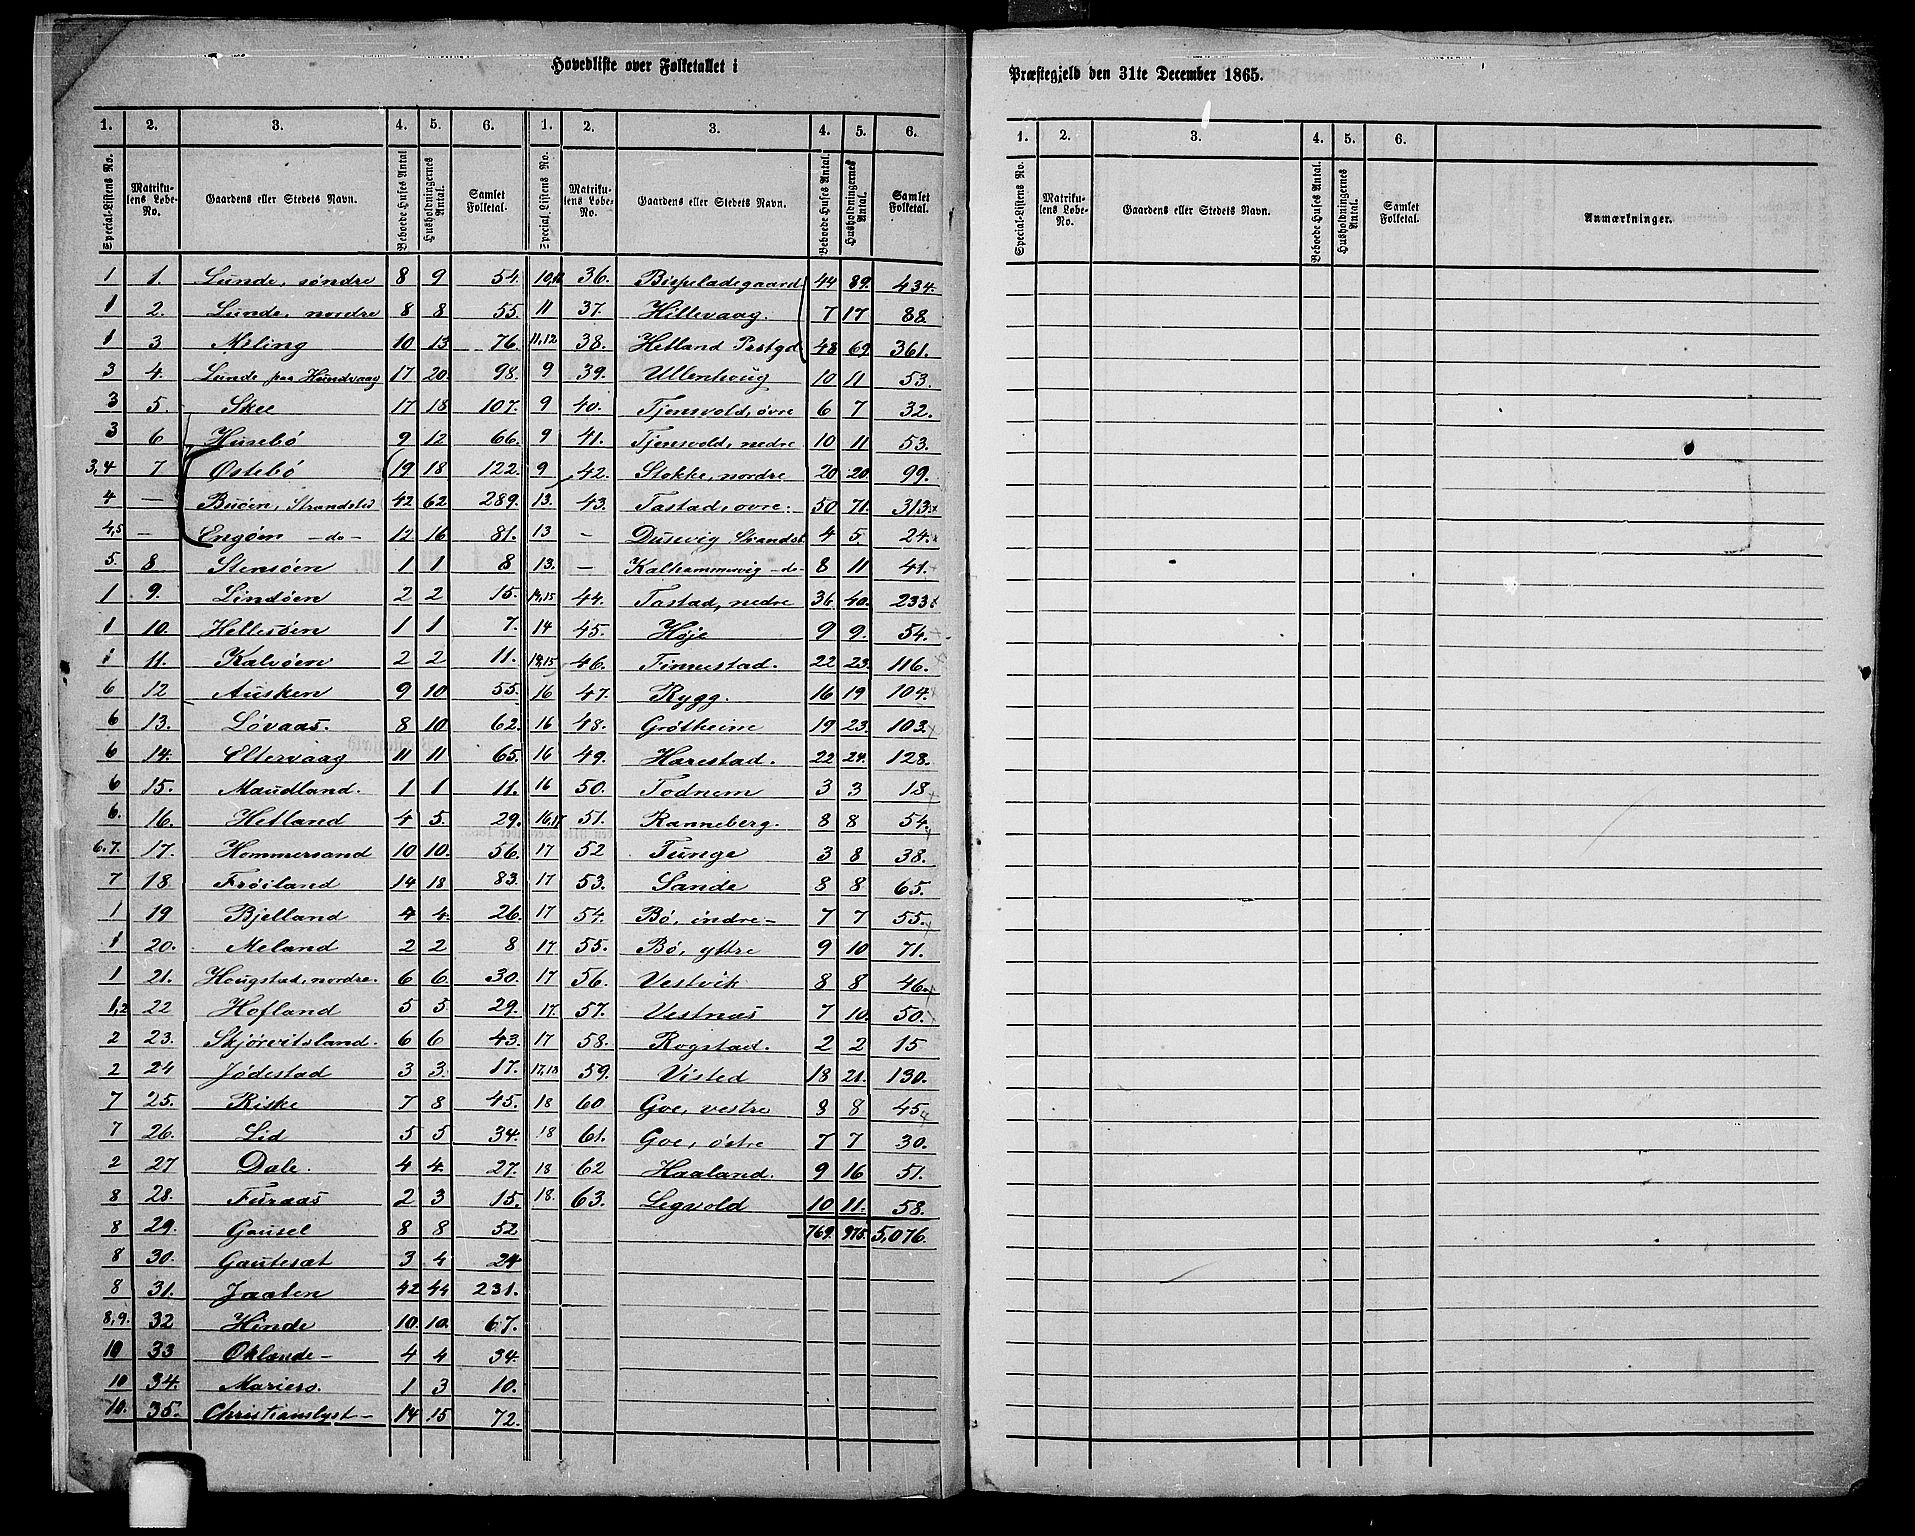 Hovedliste over Folketallet i
Præstegjeld den 31te December 1865.
1. 2. 3. 4. 5. 6. 1. 2. 3. 4. 5. 6.
Special-Listens No. Matrikulens Løbe-No. Gaardens eller Stedets Navn. Beboede Huses Antal Husholdningernes Antal. Samlet Folketal. Special-Listens No. Matrikulens Løbe-No. Gaardens eller Stedets Navn. Beboede Huses Antal. Husholdningernes Antal. Samlet Folketal.
1 1. Lunde, søndre 8 9 54. 36. Bispeladegaard 44 89. 434.
1 2. Lunde, nordre 8 8 55. 11 37. Hillevaag. 7 17 88
1 3 Meling 10 13 76. 11,12 38. Hetland Pretgd 48 69 361.
3 4. Lunde paa Hundvaag 17 20. 98. 9 39. Ullenhoug 10 11 53.
3 5. Skee 17 18 107. 9 40. Tjensvold, øvre 6 7 32.
3 6 Husebø 9 12 66. 9 41. Tjensvold, nedre 10 11 53.
3,4 7 Østebø 19 18 122. 9 42. Stokke, nordre 20 20. 99.
4 — Buøen, Strandsted 42 62 289. 13. 43. Tastad, øvre. 50 71. 313.
4,5 — Engøen —do— 12 16 81. 13 — Dusevig Strandst. 4 5. 24.
5. 8 Stensøen 1 1 8 13. — Kalhammervig —do— 8 11 41.
1 9. Lindøen 2 2 15. 14,15 44. Tastad, nedre 36 40. 233
1 10. Hellesøen 1 1 7. 14 45. Høje 9 9. 54.
1 11. Kalvøen 2 2 11. 14,15 46. Finnestad. 22 23. 116.
6 12 Ausken 9 10 55. 16 47. Rygg. 16 19 104.
6 13. Løvaas. 8 10 62. 16 48. Grøtheim 19 23. 103.
6 14. Eltervaag 11 11 65. 16 49. Harestad. 22 24. 128.
6 15. Maudland. 1 1 11. 16 50. Todnem 3 3 18
6. 16. Hetland 4 5. 29. 16,17 51. Ranneberg. 8 8 54.
6.7. 17. Hommersand 10 10. 56. 17 52 Tunge 3 8 38.
7 18. Frøiland 14 18 83. 17 53. Sande 8 8 65.
1 19 Bjelland 4 4. 26. 17 54. Bø, indre— 7 7 55.
1 20. Meland 2 2 8 17 55. Bø, yttre 9 10 71.
1 21. Hougstad, nordre. 6 6. 30. 17 56. Vestvik 8 8 46
1,2 22 Hofland 5 5 29. 17. 57. Vestnæs 7 10. 50.
2 23. Skjørvitsland. 6 6 43. 17 58. Rogstad. 2 2 15
2 24 Jødestad 3 3. 17. 17,18 59. Visted 18 21. 130.
7 25. Riske 7 8 45. 18 60. Goe, vestre 8 8 45.
7 26. Lid 5 5 34. 18 61. Goe, østre 7 7 30.
2 27 Dale. 4 4. 27. 18 62 Haaland. 9 16 51.
8 28. Furaas 2 3 15. 18. 63. Legvold 10 11. 58.
8 29. Gausel 8 8 52 769. 975. 5,076.
8 30. Gautesæt 3 4 24
8 31. Jaaten 42 44 231.
8,9. 32 Hinde 10. 10. 67.
10 33 Oklande— 4 4 34.
10 34. Mariero. 1 3 10.
10. 35. Christianslyst— 14 15 72.
1. 2. 3. 4. 5. 6.
Special-Listens No. Matrikulens Løbe-No. Gaardens eller Stedets Navn. Beboede Huses Antal. Husholdningernes Antal. Samlet Folketal. Anmærkninger.